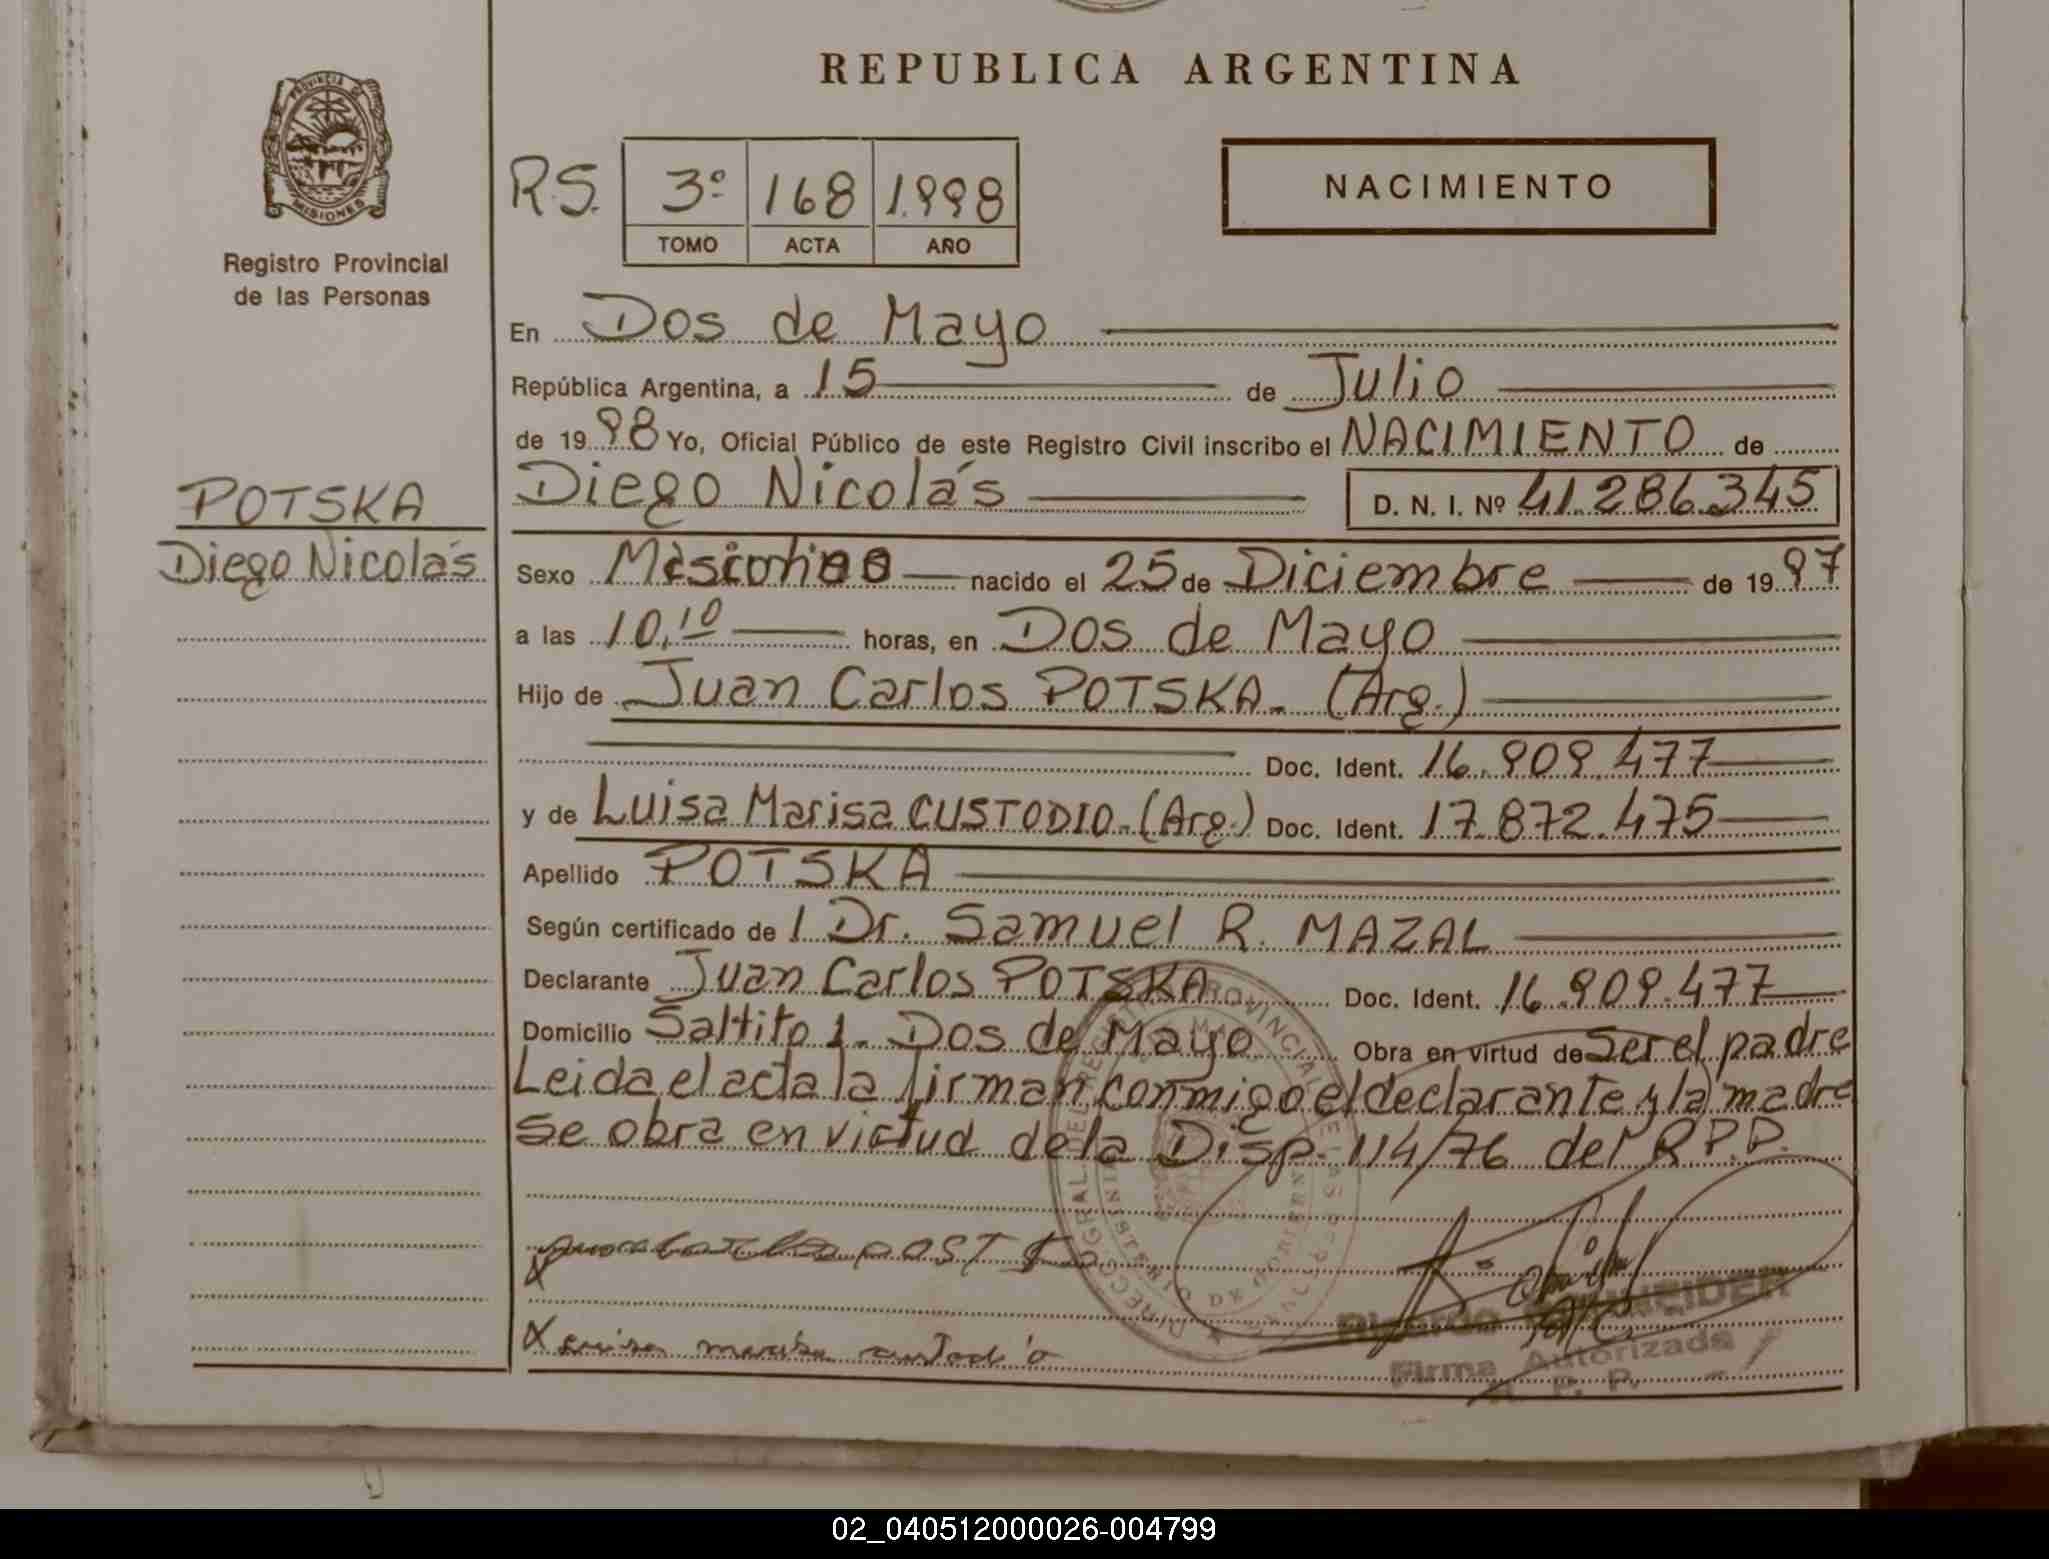 REPUBLICA ARGENTINA
PROVINCIA DE
MISIONES
Registro Provincial
de las Personas
R.S. 3º 168 1.998
TOMO ACTA AÑO
NACIMIENTO
En Dos de Mayo
República Argentina, a 15 de Julio
de 1998 Yo, Oficial Público de este Registro Civil inscribo el NACIMIENTO de
Diego Nicolás D. N. I. Nº 41.286.345
POTSKA
Diego Nicolás
Sexo nacido el 25 de Diciembre de 1997
a las 10,10 horas, en Dos de Mayo
Hijo de Juan Carlos POTSKA. (Arg.)
Doc. Ident. 16.909.477
y de Luisa Marisa CUSTODIO.(Arg.) Doc. Ident. 17.872.475
Apellido POTSKA
Según certificado de l Dr. Samuel R. MAZAL
Declarante Juan Carlos POTSKA Doc. Ident. 16.909.477
Domicilio Saltito 1. Dos de Mayo Obra en virtud de Ser el padre
Leida el acta la firman conmigo el declarante y la madre
Se obra en virtud de la Disp. 114/76 del R.P.P.
X Luisa marisa custodio
Ricardo SCHNEIDER
Firma Autorizada
R. P. P.
02_040512000026-004799